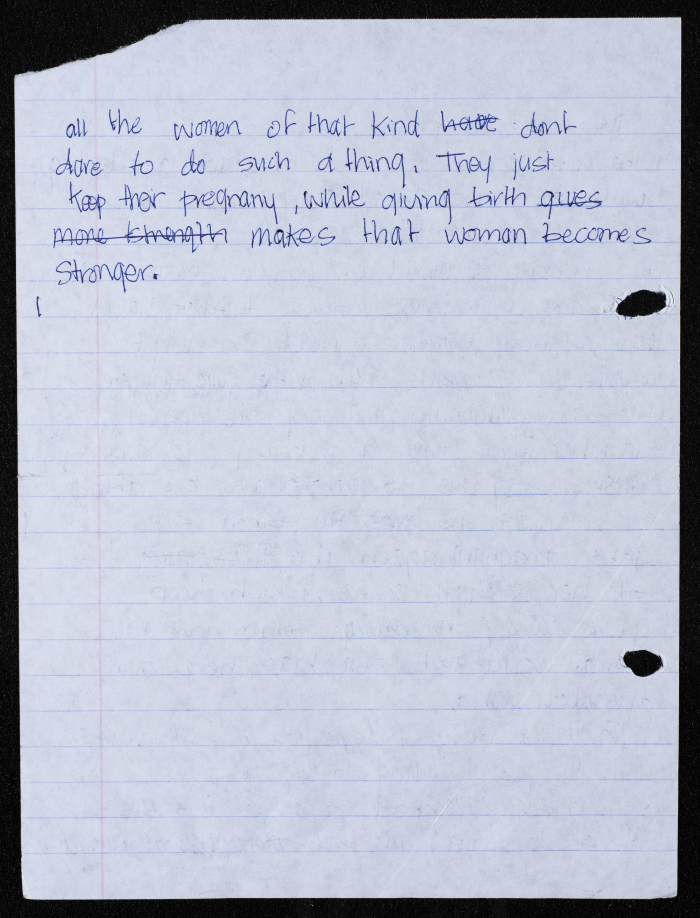 all the women of that kind have dont
dare to do such a thing. They just
keep ther pregnany, while giving birth gives
more strength makes that woman becomes
stronger.